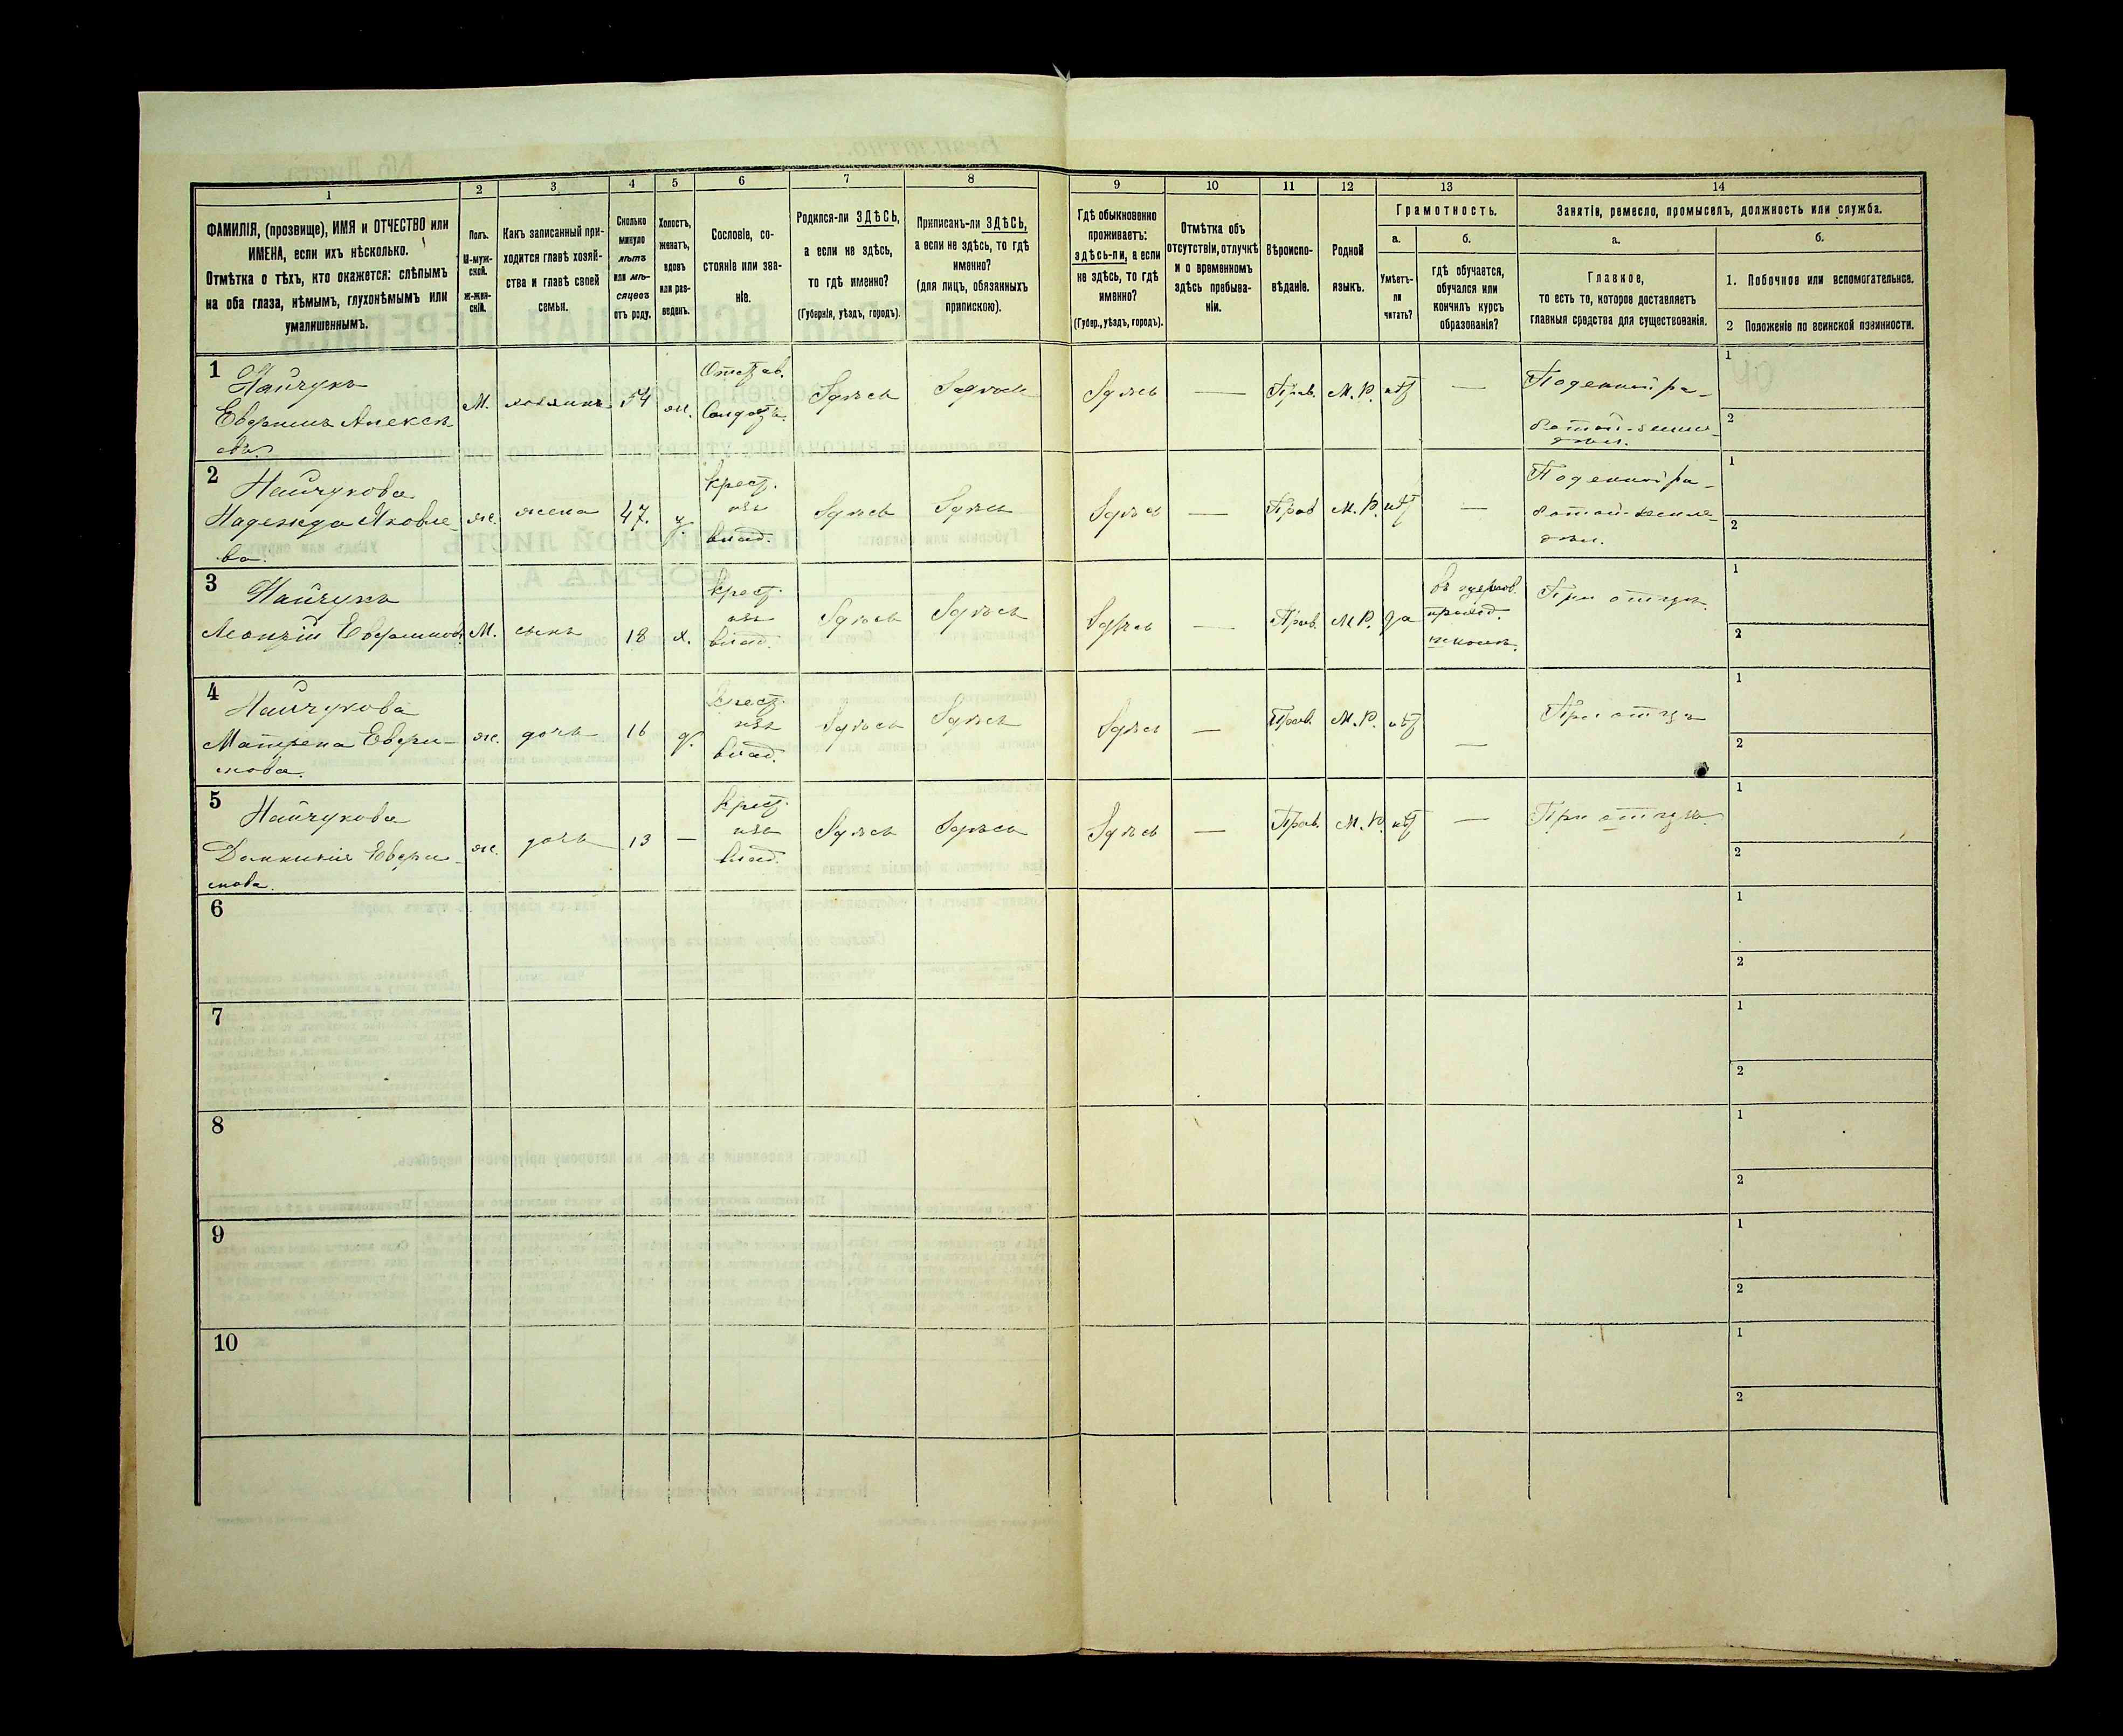 1
2
3
4
5
6
7
8
9
10
11
12
13
14
ФАМИЛІЯ, (прозвище), ИМЯ и ОТЧЕСТВО или
ИМЕНА, если ихъ нѣсколько.
Отмѣтка о тѣхъ, кто окажется: слѣпымъ
на оба глаза, нѣмымъ, глухонѣмымъ или
умалишеннымъ.
Полъ.
М-муж-
ской.
Ж-жен-
скій.
Какъ записанный при-
ходится главѣ хозяй-
ства и главѣ своей
семьи.
Сколько
минуло
лѣтъ
или мѣ-
сяцевъ
отъ роду.
Холостъ,
женатъ,
вдовъ
или раз-
веденъ.
Сословіе, со-
стояніе или зва-
ніе.
Родился-ли ЗДѢСЬ,
а если не здѣсь,
то гдѣ именно?
(Губернія, уѣздъ, городъ).
Приписанъ-ли ЗДѢСЬ,
а если не здѣсь, то гдѣ
именно?
(для лицъ, обязанныхъ
припискою).
Гдѣ обыкновенно
проживаетъ:
здѣсь-ли, а если
не здѣсь, то гдѣ
именно?
(Губер., уѣздъ, городъ).
Отмѣтка объ
отсутствіи, отлучкѣ
и о временномъ
здѣсь пребыва-
ніи.
Вѣроиспо-
вѣданіе.
Родной
языкъ.
Грамотность.
а.
б.
Умѣетъ-
ли
читать?
гдѣ обучается,
обучался или
кончилъ курсъ
образованія?
Занятія, ремесло, промыселъ, должность или служба.
а.
б.
Главное,
то есть то, которое доставляетъ
главныя средства для существованія.
1. Побочное или вспомогательное.
2 Положеніе по воинской повинности.
1
Найчукъ
Евфимъ Алексѣ
евъ.
М.
хозяинъ
54
ж.
Отстав.
Солдатъ.
Здѣсь
Здѣсь
Здѣсь
—
Прав.
М. Р.
нѣт
—
Поденной ра-
ботой-земле-
дѣл.
1
2
2
Найчукова
Надежда Яковле
ва.
ж.
жена
47.
з.
Крест.
изъ
влад.
Здѣсь
Здѣсь
Здѣсь
—
Прав
М. Р.
нѣт
—
Поденной ра-
ботой-земле-
дѣл.
1
2
3
Найчукъ
Леонтій Евфимовъ
М.
сынъ
18
х.
Крест.
изъ
влад.
Здѣсь
Здѣсь
Здѣсь
—
Прав.
М. Р.
да
въ церков.
приход.
школѣ.
При отцѣ.
1
2
4
Найчукова
Матрена Евфи-
мова.
ж.
дочь
16
д.
Крест.
изъ
влад.
Здѣсь
Здѣсь
Здѣсь
—
Прав.
М. Р.
нѣт
—
При отцѣ
1
2
5
Найчукова
Домникія Евфи-
мова.
ж.
дочь
13
—
Крест.
изъ
влад.
Здѣсь
Здѣсь
Здѣсь
—
Прав.
М. Р.
нѣт
—
При отцѣ.
1
2
6
1
2
7
1
2
8
1
2
9
1
2
10
1
2